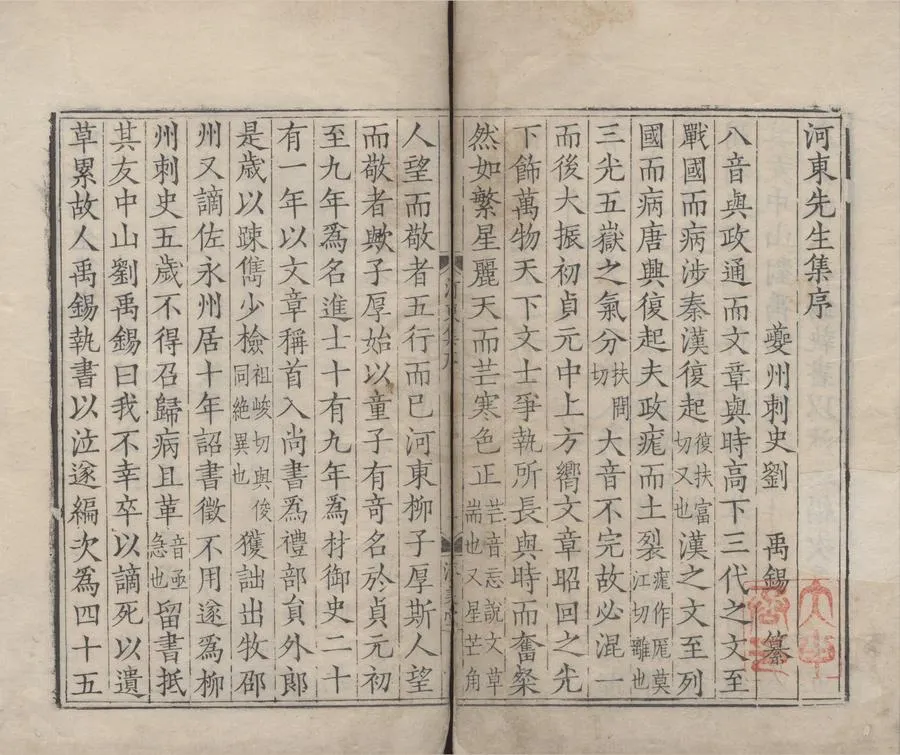 河東先生集序
夔州刺史劉 禹錫 纂
八音與政通而文章與時高下三代之文至
戰國而病涉秦漢復起復扶富切又也漢之文至列
國而病唐興復起夫政痝而土裂痝作厖莫江切雜也
三光五嶽之氣分扶問切大音不完故必混一
而後大振初貞元中上方嚮文章昭回之光
下飾萬物天下文士爭執所長與時而奮粲
然如繁星麗天而芒寒色正芒音忘說文草耑也又星芒角
人望而敬者五行而已河東柳子厚斯人望
而敬者歟子厚始以童子有奇名於貞元初
至九年爲名進士十有九年爲材御史二十
有一年以文章稱首入尚書爲禮部員外郎
是歲以踈雋少檢祖峻切與俊同絶異也獲訕出牧邵
州又謫佐永州居十年詔書徵不用遂爲柳
州刺史五歲不得召歸病且革音亟急也留書抵
其友中山劉禹錫曰我不幸卒以謫死以遺
草累故人禹錫執書以泣遂編次爲四十五
河東集序